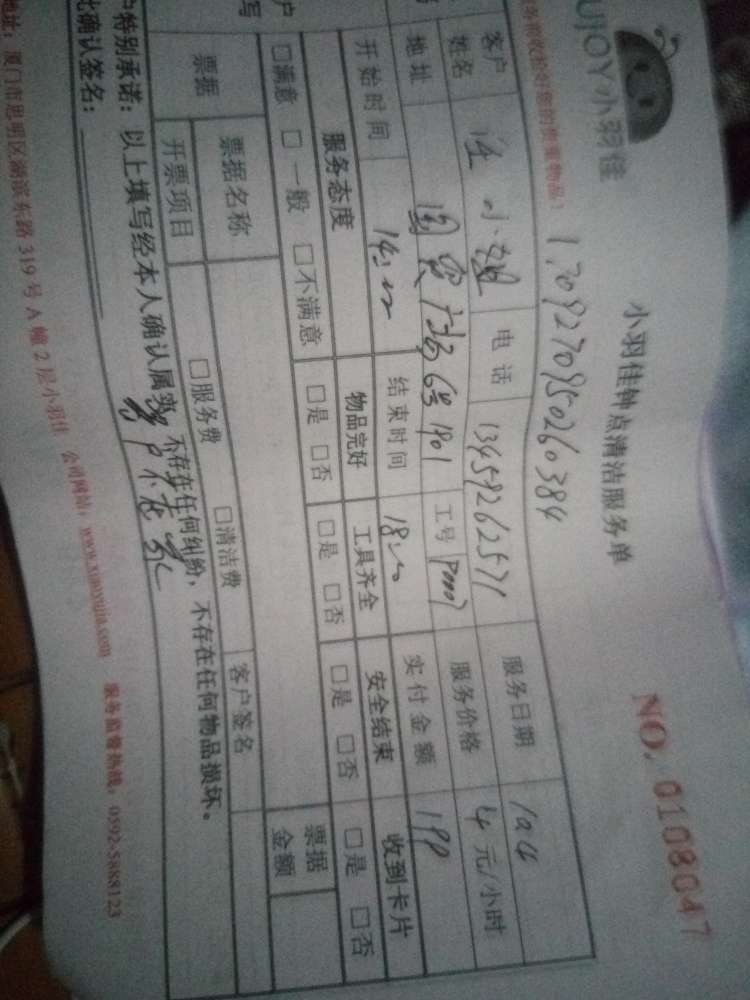 UJOY小羽佳
小羽佳钟点清洁服务单
NO. 0108047
您的贵重物品!
1309270950260384
客户姓名 小姐 电话 13459262571 服务日期
地址 6号1801 工号 P0007 服务价格 元/小时
开始时间 14:00 结束时间 18:00 实付金额
服务态度 物品完好 工具齐全 安全结束 收到卡片
□满意 □一般 □不满意 □是 □否 □是 □否 □是 □否 □是 □否
票据 票据名称 客户签名 票据金额
开票项目 □服务费 □清洁费
户特别承诺: 以上填写经本人确认属实, 不存在任何纠纷, 不存在任何物品损坏。
此确认签名: 客户不在家
地址: 厦门市思明区湖滨东路319号A幢2层小羽佳 公司网站: www.xiaoyujia.com 服务监督热线: 0592-5888123